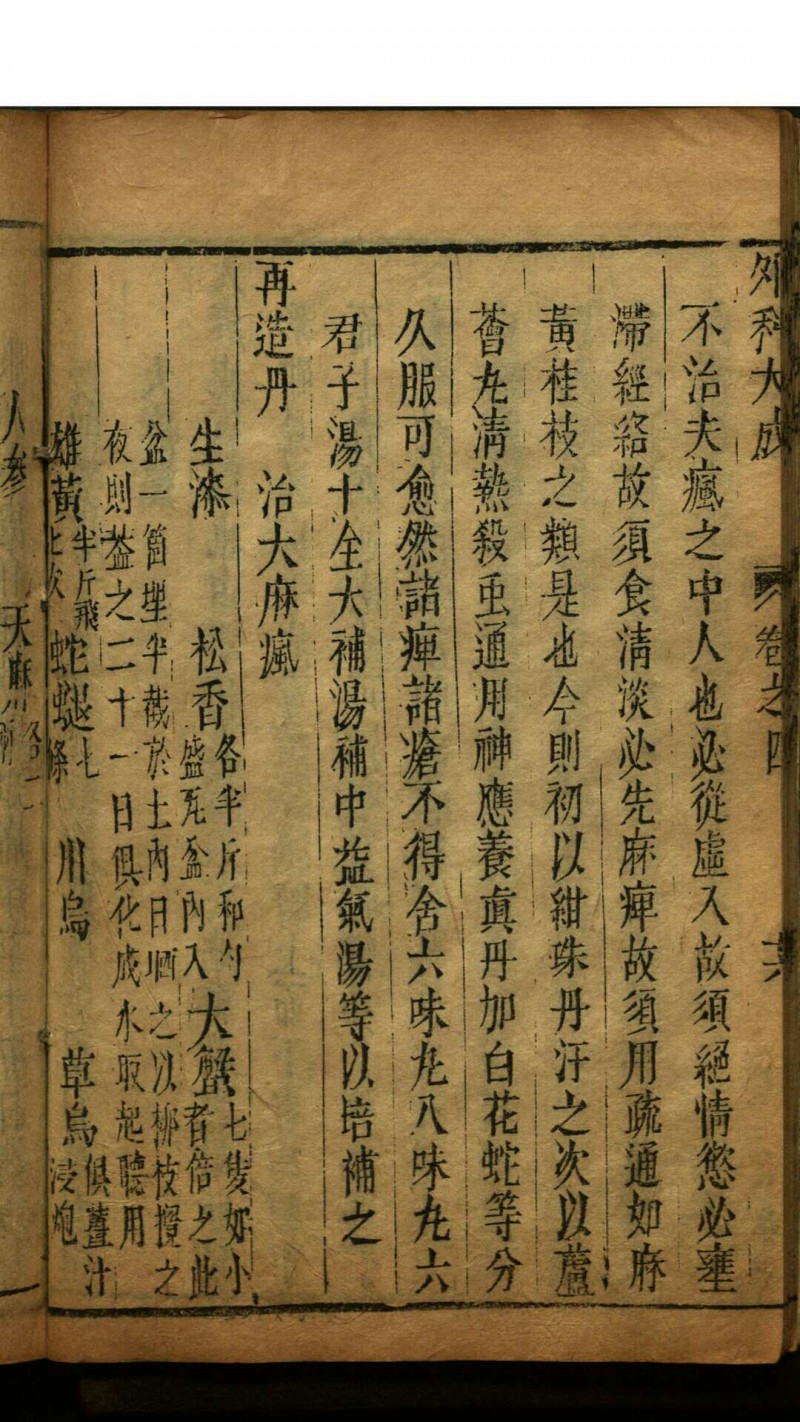 外科大成 卷之四
不治夫瘋之中人也必從虛入故須絕情慾必壅
滯經絡故須食淸淡必先麻痺故須用疏通如麻
黃桂枝之類是也今則初以紺珠丹汗之次以蘆
薈丸淸熱殺虫通用神應養眞丹加白花蛇等分
久服可愈然諸痺諸瘡不得舍六味丸八味丸六
君子湯十全大補湯補中益氣湯等以培補之
再造丹 治大麻瘋
生漆 松香各半斤和勻
盛瓦盆內入大蟹七隻如小
者倍之此
盆一箇埋半截於土內日晒之以柳枝攪之
夜則蓋之二十一日俱化成水取起聽用
雄黃半斤飛七次 蛇蛻七條 川烏 草烏俱薑汁浸炮
人參 天麻